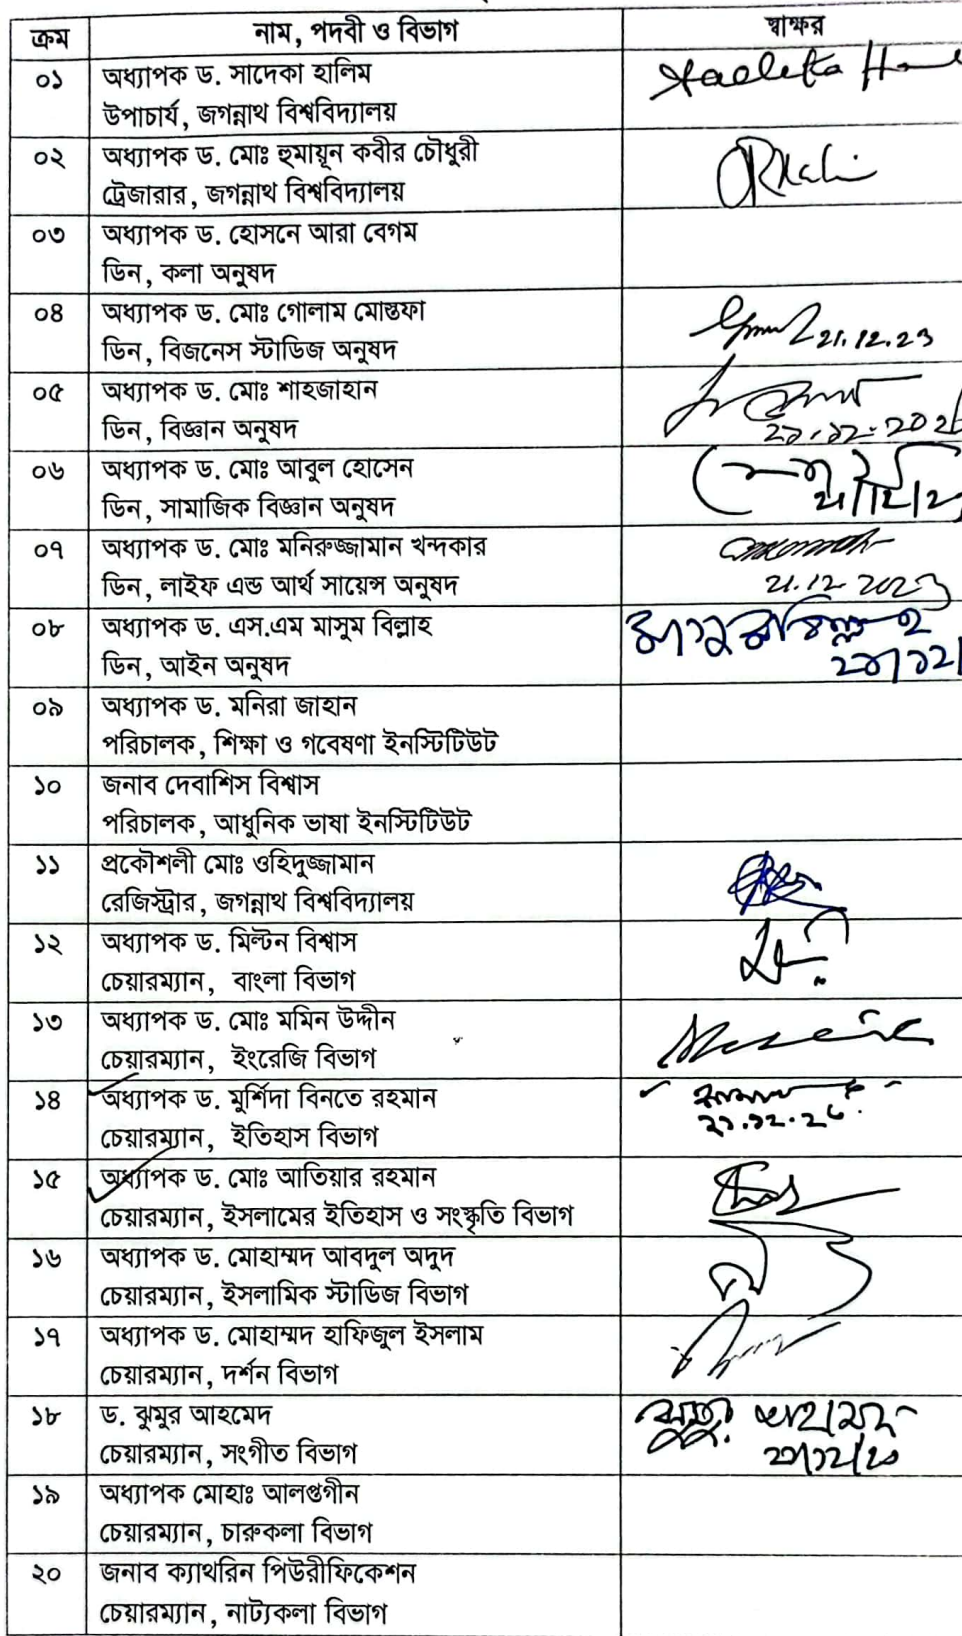 ক্রম নাম, পদবী ও বিভাগ স্বাক্ষর
০১ অধ্যাপক ড. সাদেকা হালিম
উপাচার্য, জগন্নাথ বিশ্ববিদ্যালয়
০২ অধ্যাপক ড. মোঃ হুমায়ূন কবীর চৌধুরী
ট্রেজারার, জগন্নাথ বিশ্ববিদ্যালয়
০৩ অধ্যাপক ড. হোসনে আরা বেগম
ডিন, কলা অনুষদ
০৪ অধ্যাপক ড. মোঃ গোলাম মোস্তফা
ডিন, বিজনেস স্টাডিজ অনুষদ 21.12.23
০৫ অধ্যাপক ড. মোঃ শাহজাহান
ডিন, বিজ্ঞান অনুষদ
০৬ অধ্যাপক ড. মোঃ আবুল হোসেন
ডিন, সামাজিক বিজ্ঞান অনুষদ
০৭ অধ্যাপক ড. মোঃ মনিরুজ্জামান খন্দকার
ডিন, লাইফ এন্ড আর্থ সায়েন্স অনুষদ 21.12.2023
০৮ অধ্যাপক ড. এস.এম মাসুম বিল্লাহ
ডিন, আইন অনুষদ
০৯ অধ্যাপক ড. মনিরা জাহান
পরিচালক, শিক্ষা ও গবেষণা ইনস্টিটিউট
১০ জনাব দেবাশিস বিশ্বাস
পরিচালক, আধুনিক ভাষা ইনস্টিটিউট
১১ প্রকৌশলী মোঃ ওহিদুজ্জামান
রেজিস্ট্রার, জগন্নাথ বিশ্ববিদ্যালয়
১২ অধ্যাপক ড. মিল্টন বিশ্বাস
চেয়ারম্যান, বাংলা বিভাগ
১৩ অধ্যাপক ড. মোঃ মমিন উদ্দীন
চেয়ারম্যান, ইংরেজি বিভাগ
১৪ অধ্যাপক ড. মুর্শিদা বিনতে রহমান
চেয়ারম্যান, ইতিহাস বিভাগ
১৫ অধ্যাপক ড. মোঃ আতিয়ার রহমান
চেয়ারম্যান, ইসলামের ইতিহাস ও সংস্কৃতি বিভাগ
১৬ অধ্যাপক ড. মোহাম্মদ আবদুল অদুদ
চেয়ারম্যান, ইসলামিক স্টাডিজ বিভাগ
১৭ অধ্যাপক ড. মোহাম্মদ হাফিজুল ইসলাম
চেয়ারম্যান, দর্শন বিভাগ
১৮ ড. ঝুমুর আহমেদ
চেয়ারম্যান, সংগীত বিভাগ
১৯ অধ্যাপক মোহাঃ আলপ্তগীন
চেয়ারম্যান, চারুকলা বিভাগ
২০ জনাব ক্যাথরিন পিউরীফিকেশন
চেয়ারম্যান, নাট্যকলা বিভাগ